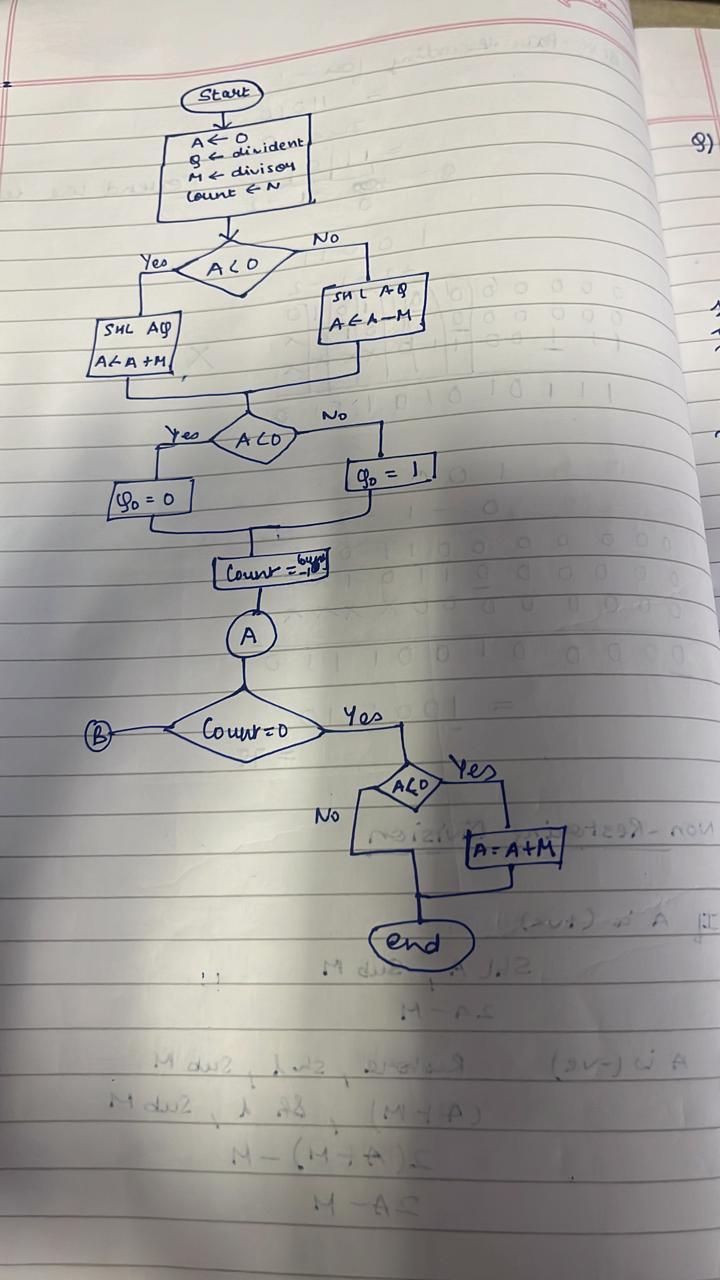 Start
A ← 0
Q ← divident
M ← divisor
Count ← N
A < 0
Yes
No
SHL AQ
A ← A + M
SHL AQ
A ← A - M
A < 0
Yes
No
Q₀ = 0
Q₀ = 1
Count =
A
Count = 0
B
Yes
A < 0
No
Yes
A = A + M
end
Q)